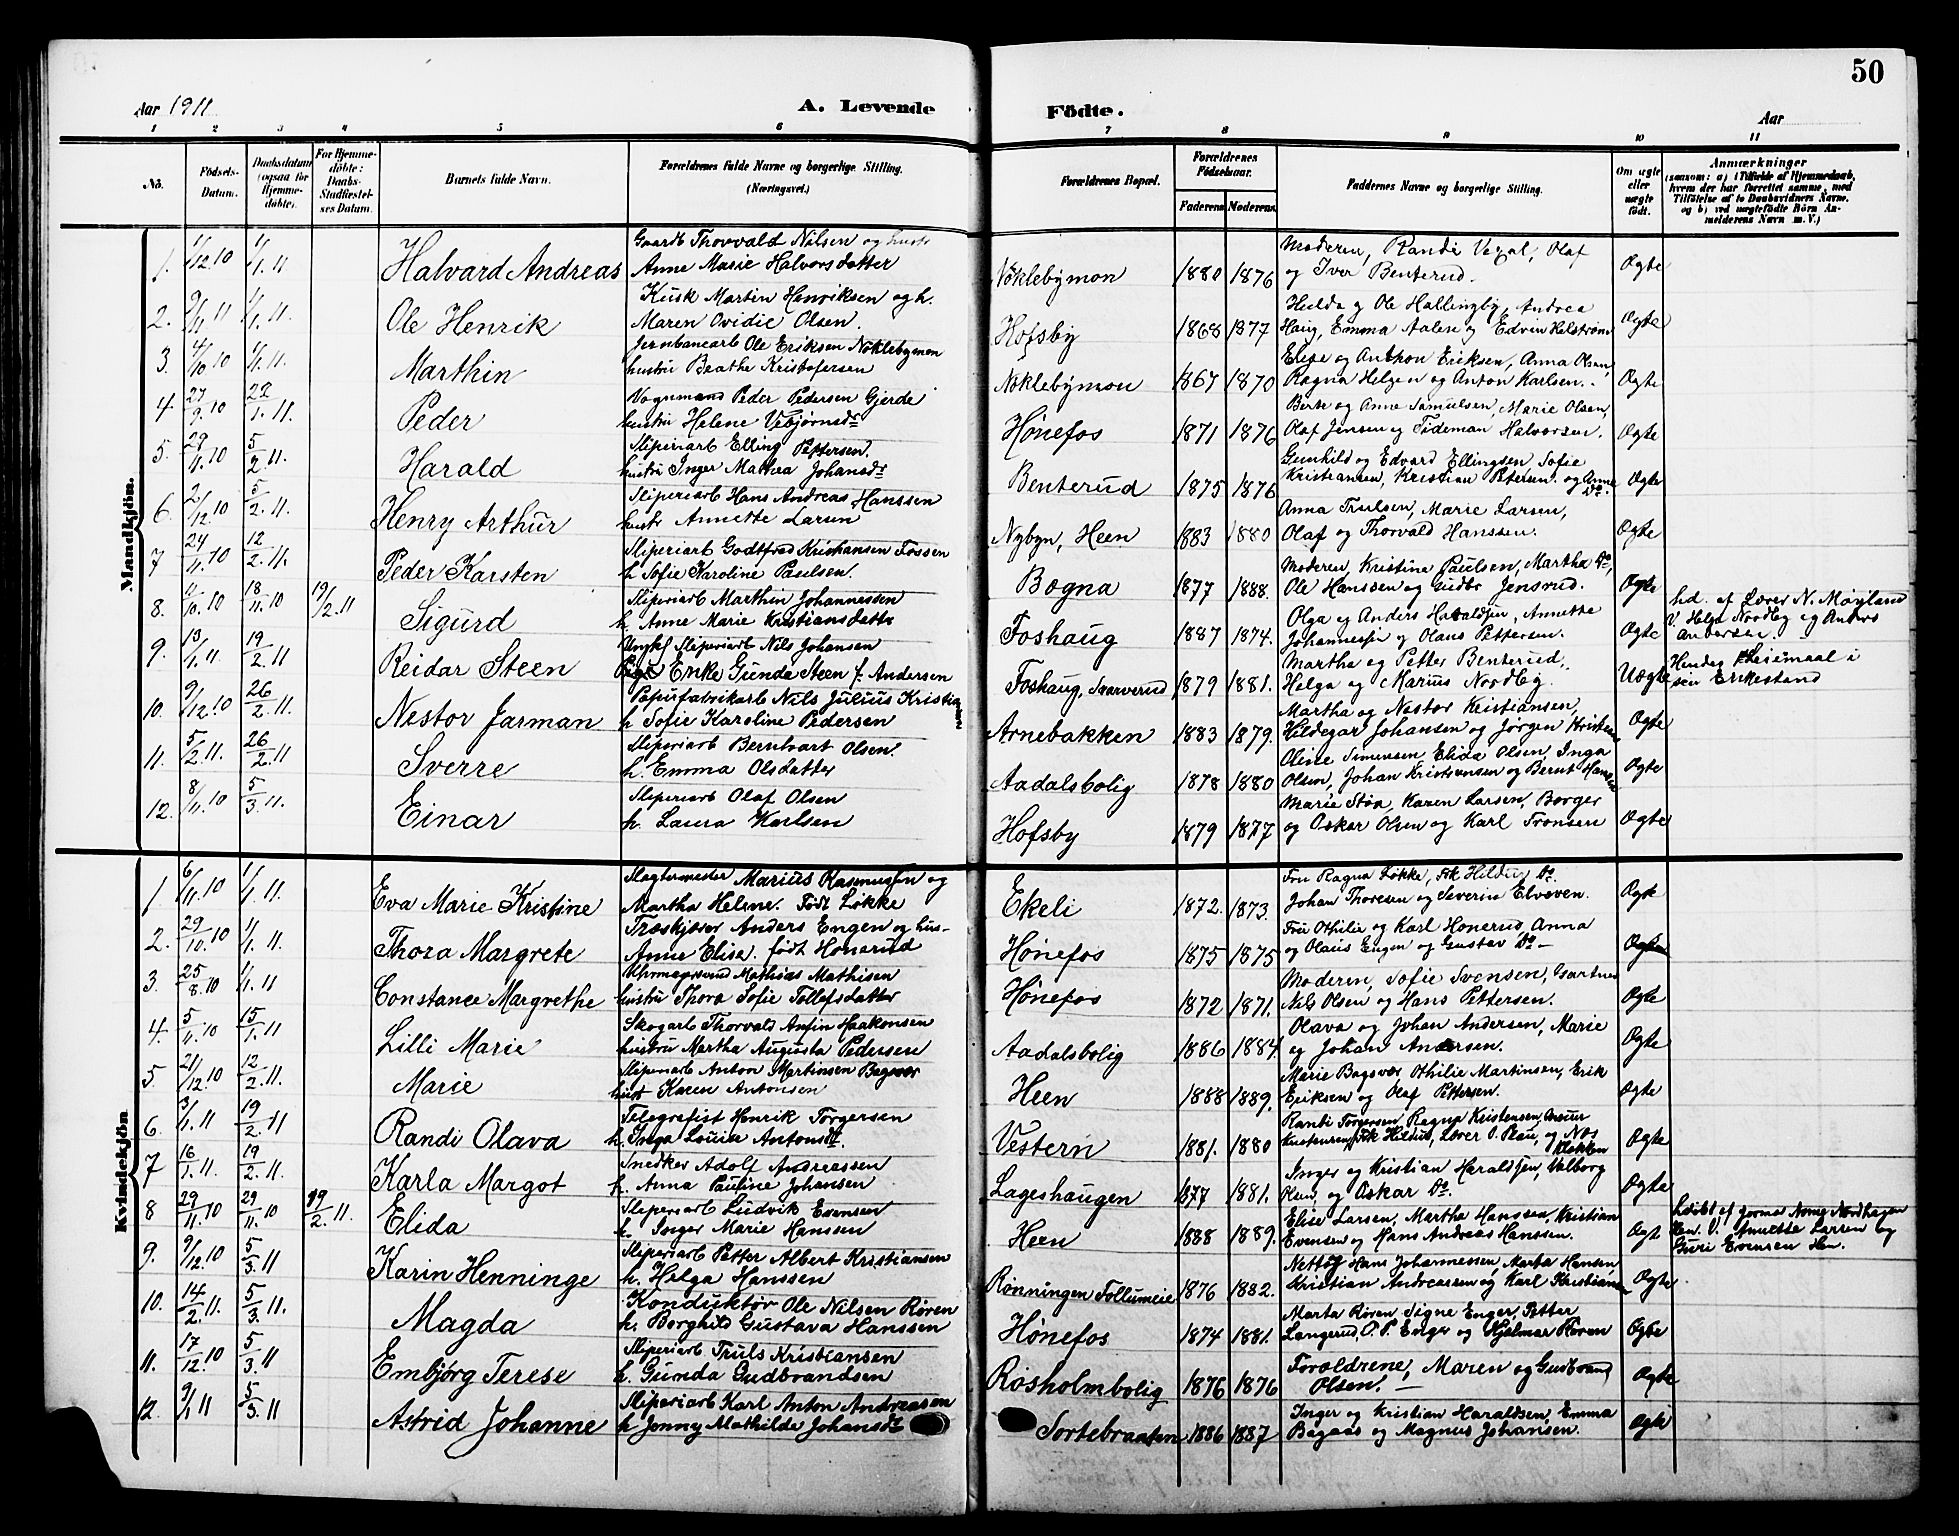 50
Aar 1911
A. Levende Födte.
Aar
1 2 3 4 5 6 7 8 9 10 11
No.
Födsels-Datum.
Daabsdatum (ogsaa for Hjemme-döbte).
For Hjemme-döbte: Daabs-Stadfæstel-ses Datum.
Barnets fulde Navn.
Forældrenes fulde Navne og borgerlige Stilling. (Næringsvei.)
Forældrenes Bopæl.
Forældrenes Födselsaar.
Faderens Moderens
Faddernes Navne og borgerlige Stilling.
Om ægte eller uægte födt.
Anmærkninger
(saasom: a) i Tilfælde af Hjemmedaab, hvem der har forrettet samme, med Tilföielse af to Daabsvidners Navne. og b) ved uægtefödte Börn Anmelderens Navn m. V.)
Mandkjön.
1. 1/12 10 1/1 11 Halvard Andreas Gaardb Thorvald Nilsen og hustr
Anne Marie Halvorsdatter Noklebymon 1880 1876 Moderen, Randi Olaf
og Iver Benterud. Ægte
2. 9/11 1/1 11. Ole Henrik Kusk Martin Henriksen og h.
Maren Ovidie Olsen. Hofsby 1868 1877 Hilda og Ole Hallingby, Andrea
Haug, Emma Aalen og Edvin Ægte
3. 4/10 10 1/1 11. Marthin Jernbanearb Ole Eriksen Noklebymon
hustru Beathe Kristofersen Noklebymon 1867 1870 Elise og Anthon Eriksen, Anna Olsen,
Ragna Helgen og Anton Karlsen. Ægte
4 27/9 10 22/1 11. Peder Vognmand Peder Pedersen Gjerde
hustru Helene Vebjørnsdr Hønefos 1871 1876 Berte og Anne Samuelsen, Marie Olsen,
Olaf Jensen og Tideman Halvorsen. Ægte
5. 29/11 10 5/2 11. Harald Sliperiarb Elling Pettersen.
hustru Inger Mathea Johansdr Benterud 1875 1876 Gunhild og Edvard Ellingsen, Sofie
Kristiansen, Kristian Petersen og Anna Do. Ægte
6. 2/12 10 5/2 11. Henry Arthur Sliperiarb Hans Andreas Hanssen
hustr Annette Larsen Nybyn, Heen 1883 1880 Anna Trulsen, Marie Larsen,
Olaf og Thorvald Hanssen. Ægte
7 24/11 10 12/2 11. Peder Karsten Sliperiarb Godtfred Kristiansen Fossen
h Sofie Karoline Paulsen. Bogna 1877 1888. Moderen, Kristine Paulsen, Martha Do,
Ole Hanssen og Gudbr Jensrud. Ægte
8. 11/10 10 18/11 10 19/2 11 Sigurd Sliperiarb Marthin Johannessen
h Anne Marie Kristiansdatte Foshaug 1887 1874. Olga og Anders Annette
Johannessen og Olaus Pettersen. Ægte hd. af Lærer N. Moyland
V. Helga Nordby og Anders
Andersen.
9. 13/1 11. 19/2 11 Reidar Steen Ungkl Sliperiarb Nils Johansen
Pige Enke Gunda Steen f. Andersen Foshaug, Svarverud 1879 1881. Martha og Petter Benterud,
Helga og Marius Nordby. Uægte i
sin Enkestand
10. 9/12 10 26/2 11. Nestor Jarman Papirfabrikarb Nils Julius Kristiansen
h Sofie Karoline Pedersen Arnebakken 1883 1879. Martha og Nestor Kristiansen,
Hildegar Johansen og Jørgen Ægte
11. 5/2 11. 26/2 11 Sverre Sliperiarb Berntvart Olsen.
h. Emma Olsdatter Aadalsbolig 1878 1880 Oline Simensen, Elida Olsen, Inga
Olsen, Johan Kristiansen og Bernt Hansen Ægte
12. 8/11 10 5/3 11. Einar Sliperiarb Olaf Olsen
h. Laura Karlsen Hofsby 1879 1877 Marie Støa, Karen Larsen, Borger
og Oskar Olsen og Karl Tronsen Ægte
Kvindekjön.
1. 6/11 10 1/1 11. Eva Marie Kristine Slagtermester Marius Rasmussen og
Martha Helene. Født Løkke Ekeli 1872. 1873. Fru Ragna Løkke, Frk Hildur Do.
Johan Thoresen og Severin Elveven. Ægte
2. 29/10 10 1/1 11. Thora Margrete Træskjærer Anders Engen og hus-
Anne Elise. født Honerud Hønefos 1875 1875 Fru Othilie og Karl Honerud, Anna
og Olaus Engen og Gustav Do — Ægte
3. 25/8 10 1/1 11 Constance Margrethe Uhrmagersvend Mathias Mathisen
hustru Thora Sofie Tollefsdatter Hønefos 1872 1871. Moderen, Sofie Svensen, Gartner
Nels Olsen og Hans Pettersen. Ægte
4. 5/11 10 15/1 11 Lilli Marie Skogarb Thorvald Anfin Haakonsen
hustru Martha Augusta Pedersen Aadalsbolig 1886 1884. Olava og Johan Andersen, Marie
og Johan Andersen. Ægte
5. 21/12 10 12/2 11. Marie Sliperiarb Anton Martinsen Bagsvær
hust Karen Antonsen Heen 1888 1889. Marie Bagsvær Othilie Martinsen, Erik
Eriksen og Olaf Pettersen. Ægte
6. 3/1 11 19/2 11 Randi Olava Telegrafist Henrik Torgersen
h. Inga Louise Antonsdr. Vestern 1881. 1880 Randi Torgersen, Ragna Kristensen,
Frk Hildur, Lærer O. Rau, og Nils
Klokken Ægte
7 16/1 11. 19/2 11. Karla Margot Snedker Adolf Andreassen
h. Anna Pauline Johansen Lageshaugen 1877 1881. Inger og Kristian Haraldsen, Valborg
Olsen, og Oskar Do. Ægte
8 29/11 10 29/11 10 19/2 11. Elida Sliperiarb Ludvik Evensen
h. Inger Marie Hansen Heen 1888 1889. Elise Larsen, Martha Hanssen, Kristian
Evensen og Hans Andreas Hanssen. Ægt hdøbt af Jorma Nordhagen
Hen. V. Annette Larsen og
Guri Evensen Hen.
9. 9/12 10 5/3 11 Karin Henninge Sliperiarb Petter Albert Kristiansen
h. Helga Hanssen Rønningen Follumeie 1876 1882. Netty Hans Johannessen, Marta Hansen,
Kristian Andreassen og Karl Kristiansen Ægte
10. 14/2 11. 5/3 11. Magda Konduktør Ole Nilsen Røren
h. Borghild Gustava Hanssen Hønefos 1874 1881. Marta Røren, Signe Enger, Petter
Langerud, O. P. Enger og Hjelmar Røren Ægte
11. 17/12 10 5/3 11 Embjørg Terese Sliperiarb. Truls Kristiansen
h. Gunda Gudbrandsen Rosholmbolig 1876 1876 Forældrene, Maren og Gudbrand
Olsen. — Ægte
12. 9/1 11 5/3 11 Astrid Johanne Sliperiarb Karl Anton Andreasen
h Jenny Mathilde Johansdr Sortebraaten 1886 1887 Inger og Kristian Haraldsen, Emma
Bagaas og Magnus Johansen. Ægte